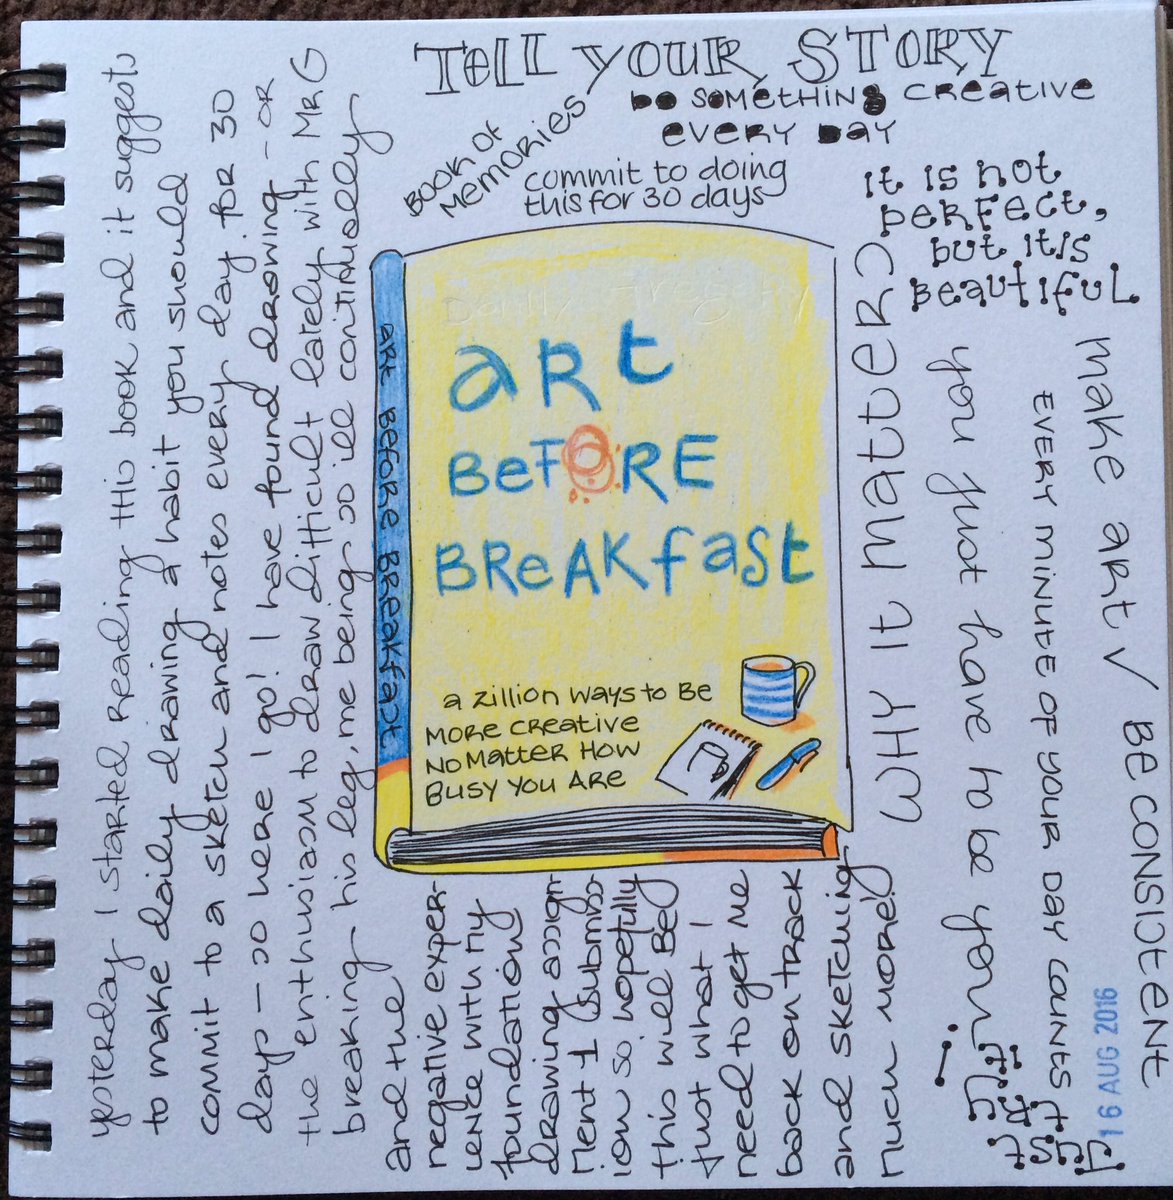 TELL YOUR STORY
DO SOMETHING CREATIVE
EVERY DAY
BOOK OF
MEMORIES
commit to doing
this for 30 days
it is not
PERFECT,
but it is
BEAUTIFUL
yesterday I started reading this book and it suggests
to make daily drawing a habit you should
commit to a sketch and notes every day for 30
days - so here I go! I have found drawing - or
the enthusiasm to draw difficult lately with Mr G
breaking his leg, me being so ill continually
and the
negative exper-
ience with my
foundation
drawing assign-
ment 1 submiss-
ion so hopefully
this will be
just what I
need to get me
back on track
and sketching
much more!
ART BEFORE BREAKFAST
ART
BEFORE
BREAKFAST
a zillion ways to be
more creative
no matter how
busy you are
WHY IT MATTERS
you just have to be you
EVERY MINUTE OF YOUR DAY COUNTS
make art √ BE CONSISTENT
16 AUG 2016